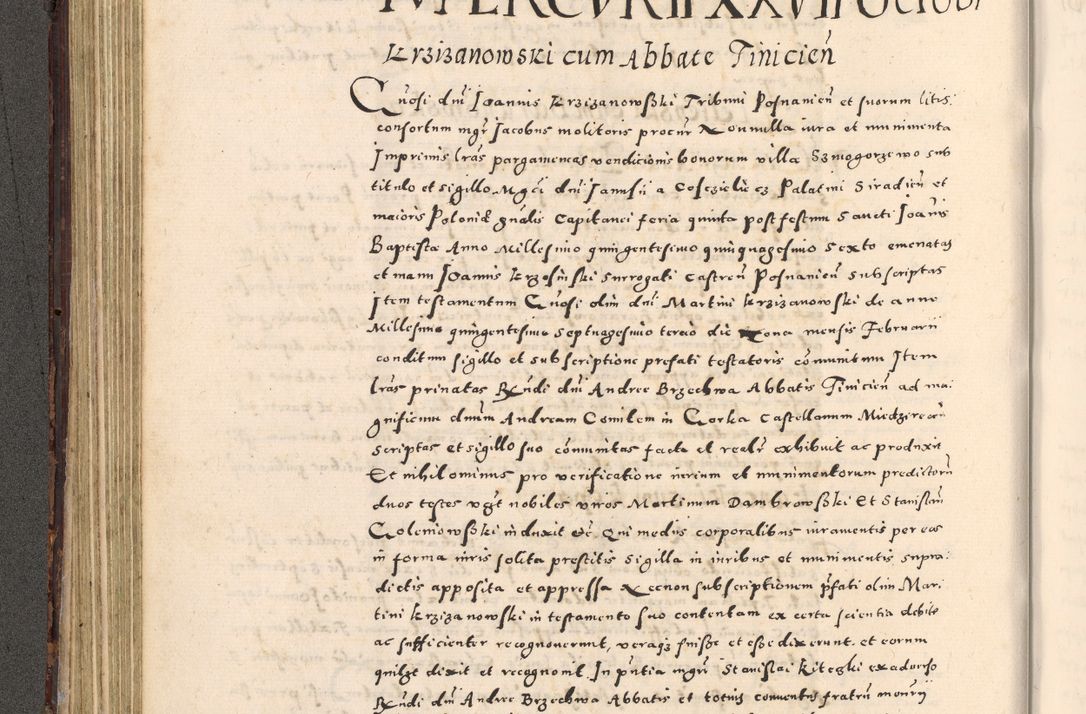 Krzizanowski cum Abbate Tinicieñ
Gñosi dñi Joannis Krzizanowsski Tribuni Posnanieñ et suorum litis
consortum mgr Jacobus molitoris procur Nonnulla iura et munimenta
Imprimis lras pargameneas vendicionis bonorum villa Szmogorzewo sub
titulo et sigillo Mgci dñi Janusii a Palatini Siradieñ et
maioris Poloniæ gñalis Capitanei feria quinta post festum Sancti Joañis
Baptistæ Anno Millesimo quingentesimo quinquagesimo Sexto emanatas
et manu Joannis Krzosinski Surrogati Castreñ Posnanieñ subscriptas
Item testamentum Gñosi olim dñi Martini Krzizanowski de anno
Millesimo quingentesimo Septuagesimo tercio die Nona mensis Februarii
conditum sigillo et subscriptione prefati testatoris cõmunitum Item
lras privatas Rñdi dñi Andree Brzechwa Abbatis Tinicieñ ad ma:
gnificum dnum Andream Comitem in Gorka Castellanum
scriptas et sigillo suo cõmunitas facto et realr exhibuit ac produxit
Et nihilominus pro verificatione iurium et munimentorum predictorũ
duos testes vgt nobiles viros Martinum Dambrowsski Et Stanislaũ
Goleniowsski induxit etc̃ Qui mediis corporalibus iuramentis per eos
in forma iuris solita prestitis Sigilla in iuribus et munimentis supra:
dictis apposita et appressa Necnon subscriptionem pfati olim Mar:
tini Krzizanowski in testamento suo contentam ex certa scientia debite
ac sufficienter recognoverunt, veraqz fuisse et esse dixerunt. et eorum
quilzt dixit et recognovit. In pñtia mgri Stanislai ex adverso
Rñdi dñi Andree Brzechwa Abbatis et totius conventus fratrũ